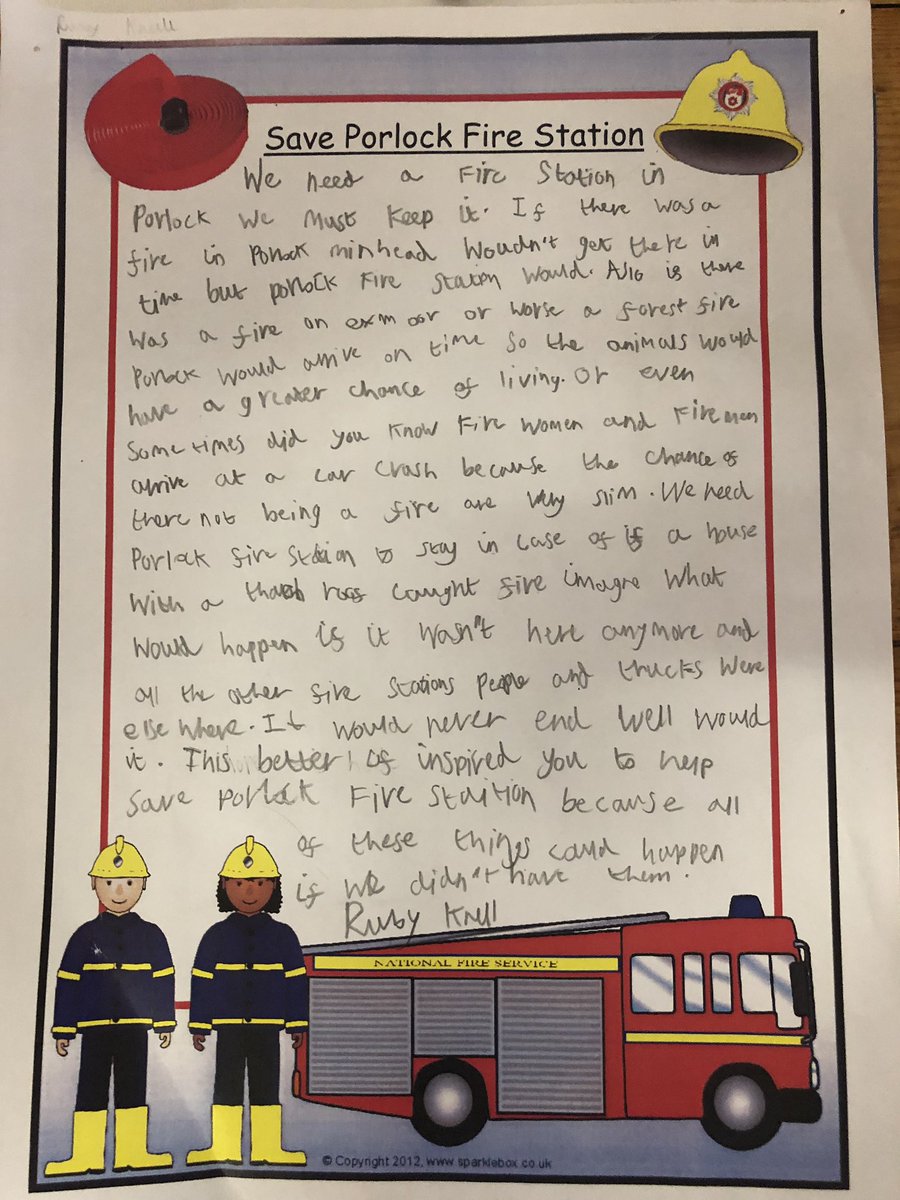 Ruby Knell
Save Porlock Fire Station
We need a Fire Station in
Porlock we must keep it. If there was a
fire in Porlock minhead woudn't get there in
time but porlock Fire Station would. Also is there
was a fire on exmoor or worse a forest fire
Porlock would arrive on time so the animals would
have a greater chance of living. Or even
Sometimes did you know Fire women and Firemen
arrive at a car crash because the chance of
there not being a fire are very slim. We need
Porlock fire Station to stay in case of if a house
with a roof caught fire imagne what
would happen is it wasn't here anymore and
all the other fire stations people and thucks were
elsewhere. It would never end well would
it. This better of inspired you to help
Save Porlock Fire Staition because all
of these things could happen
is we didn't have them.
Ruby Knell
NATIONAL FIRE SERVICE
© Copyright 2012, www.sparklebox.co.uk